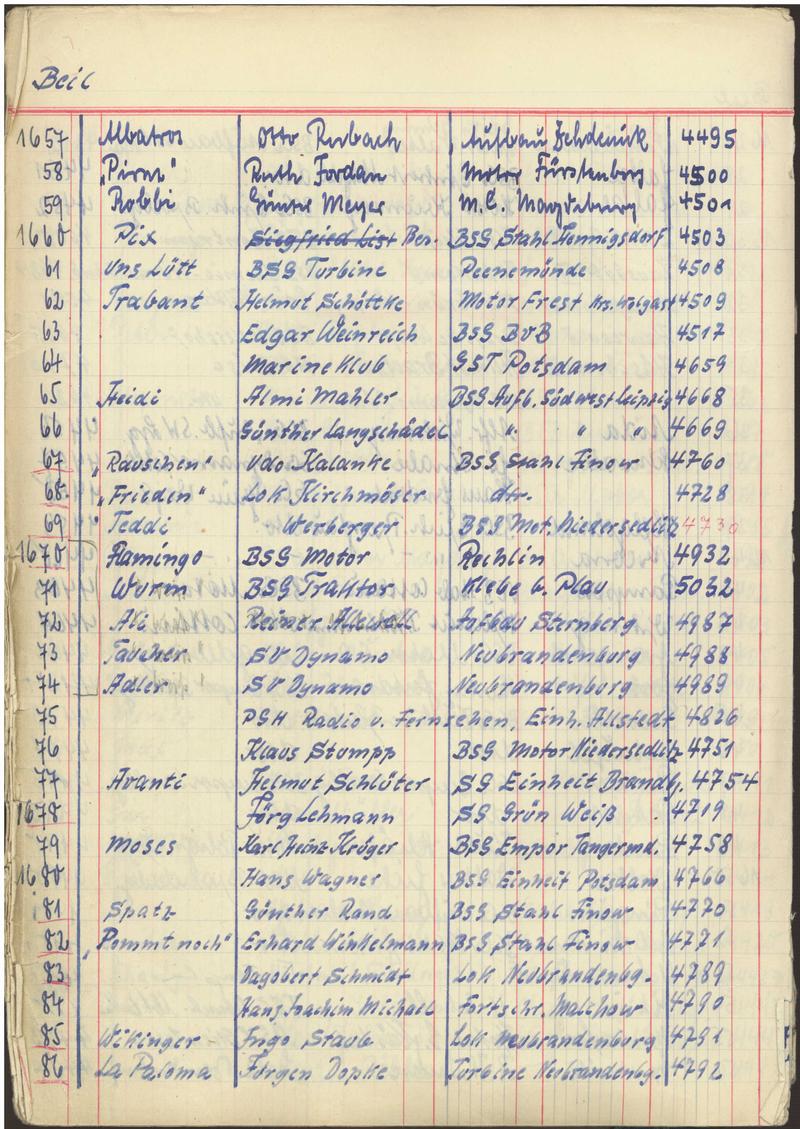 Beil
1657 Albatros Otto Rerbach Aufbau Zehdenick 4495
58 „Pirat" Ruth Jordan Motor Fürstenberg 4500
59 Robbi Günter Meyer M.C. Magdeburg 4501
1660 Pix Siegfried List Ber. BSG Stahl Hennigsdorf 4503
61 Uns Lütt BSG Turbine Peenemünde 4508
62 Trabant Helmut Schöttke Motor Frest Krs. Wolgast 4509
63 Edgar Weinreich BSG BVB 4517
64 Marine Klub GST Potsdam 4659
65 Heidi Almi Mahler BSG Aufb. Südwest Leipzig 4668
66 Günther Langschädel " " " 4669
67 „Rauschen" Udo Kalanke BSG Stahl Finow 4760
68 „Frieden" Lok Kirchmöser dtr. 4728
69 Teddi Werberger BSG Mot. Niedersedlitz 4730
1670 Flamingo BSG Motor Rechlin 4932
71 Wurm BSG Traktor Klebe b. Plau 5032
72 Ali Reiner Aufbau Sternberg 4987
73 Taucher SV Dynamo Neubrandenburg 4988
74 Adler SV Dynamo Neubrandenburg 4989
75 PSH Radio u. Fernsehen, Einh. Allstedt 4826
76 Klaus Stumpp BSG Motor Niedersedlitz 4751
77 Avanti Helmut Schlüter SG Einheit Brandbg. 4754
1678 Jörg Lehmann SG Grün Weiß 4719
79 Moses Karl Heinz Krüger BSG Empor Tangermd. 4758
1680 Hans Wagner BSG Einheit Potsdam 4766
81 Spatz Günther Rand BSG Stahl Finow 4770
82 „Pommt noch" Erhard Winkelmann BSG Stahl Finow 4771
83 Dagobert Schmidt Lok Neubrandenbg. 4789
84 Hans Joachim Michael Fortschr. Malchow 4790
85 Wikinger Ingo Staub Lok Neubrandenburg 4791
86 La Paloma Jürgen Dopke Turbine Neubrandenbg. 4792